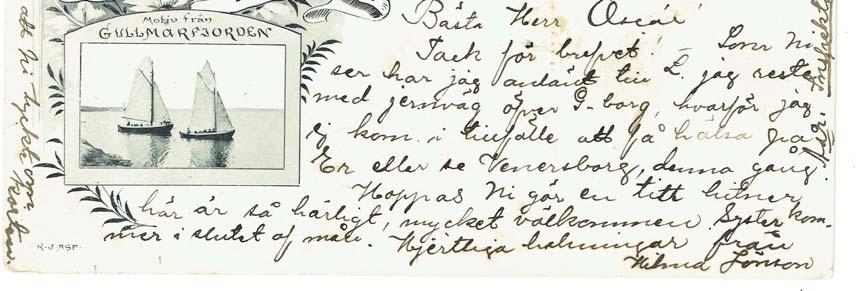 Motiv från
GULLMARFJORDEN
K.J. ASP.
Bästa Herr Oscar!
Tack för brefvet! – Som Ni
ser har jag anländt till L. jag reste
med jernväg öfver G-borg, hvarför jag
ej kom i tillfälle att få hälsa på
Er eller se Venersborg, denna gång.
Hoppas Ni gör en titt hitner
här är så härligt, mycket välkommen. Syster kom-
mer i slutet af mån. Hjertliga helsningar från
Hilma Jönson
att Ni tyckt om
korten.
Adr. Inspektor